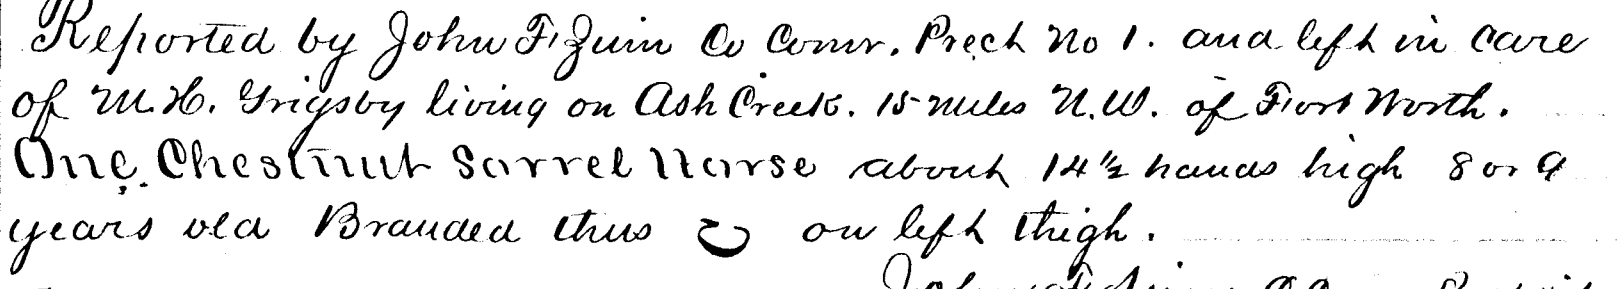 Reported by John F. Zinn Co Comr. Prect No 1. and left in care
of M. H. Grigsby living on Ash Creek. 15 miles N.W. of Fort Worth.
One Chestnut Sorrel Horse about 14 1/2 hands high 8 or 9
years old Branded thus on left thigh.
John F.